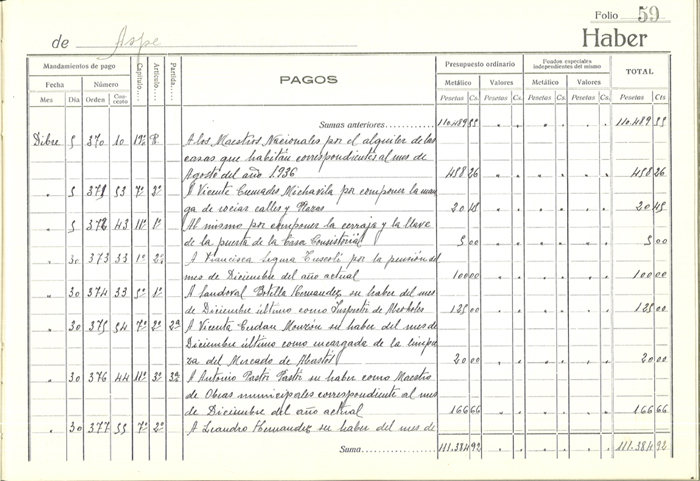 Folio 59
de Aspe
Haber
Mandamientos de pago
Fecha Número
Mes Día Orden Concepto Capítulo Artículo Partida
PAGOS
Presupuesto ordinario
Metálico Valores
Pesetas Cs. Pesetas Cs.
Fondos especiales independientes del mismo
Metálico Valores
Pesetas Cs. Pesetas Cs.
TOTAL
Pesetas Cts
Sumas anteriores 110.489 55 110.489 55
Dibre 5 370 10 8º A los Maestros Nacionales por el alquiler de las
casas que habitan correspondientes al mes de
Agosto del año 1936 458 26 458 26
" 5 371 53 7º 3º A Vicente Michavila por componer la man
ga de rociar calles y Plazas 20 45 20 45
" 5 372 43 11º 1º Al mismo por componer la cerraja y la llave
de la puerta de la Casa Consistorial 5 00 5 00
" 30 373 33 1º 2º A Francisca Segura por la pensión del
mes de Diciembre del año actual 100 00 100 00
" 30 374 33 5º 1º A Sandoval Botella Hernandez su haber del mes
de Diciembre último como Inspector de 125 00 125 00
" 30 375 54 7º 2º 2ª A Vicenta Cerdan su haber del mes de
Diciembre último como encargada de la limpie
za del Mercado de Abastos 20 00 20 00
" 30 376 44 11º 3º 3ª A Antonio Pastor Pastor su haber como Maestro
de Obras municipales correspondiente al mes
de Diciembre del año actual 166 66 166 66
" 30 377 55 7º 2º A Leandro Hernandez su haber del mes de
Suma 111.384 92 111.384 92